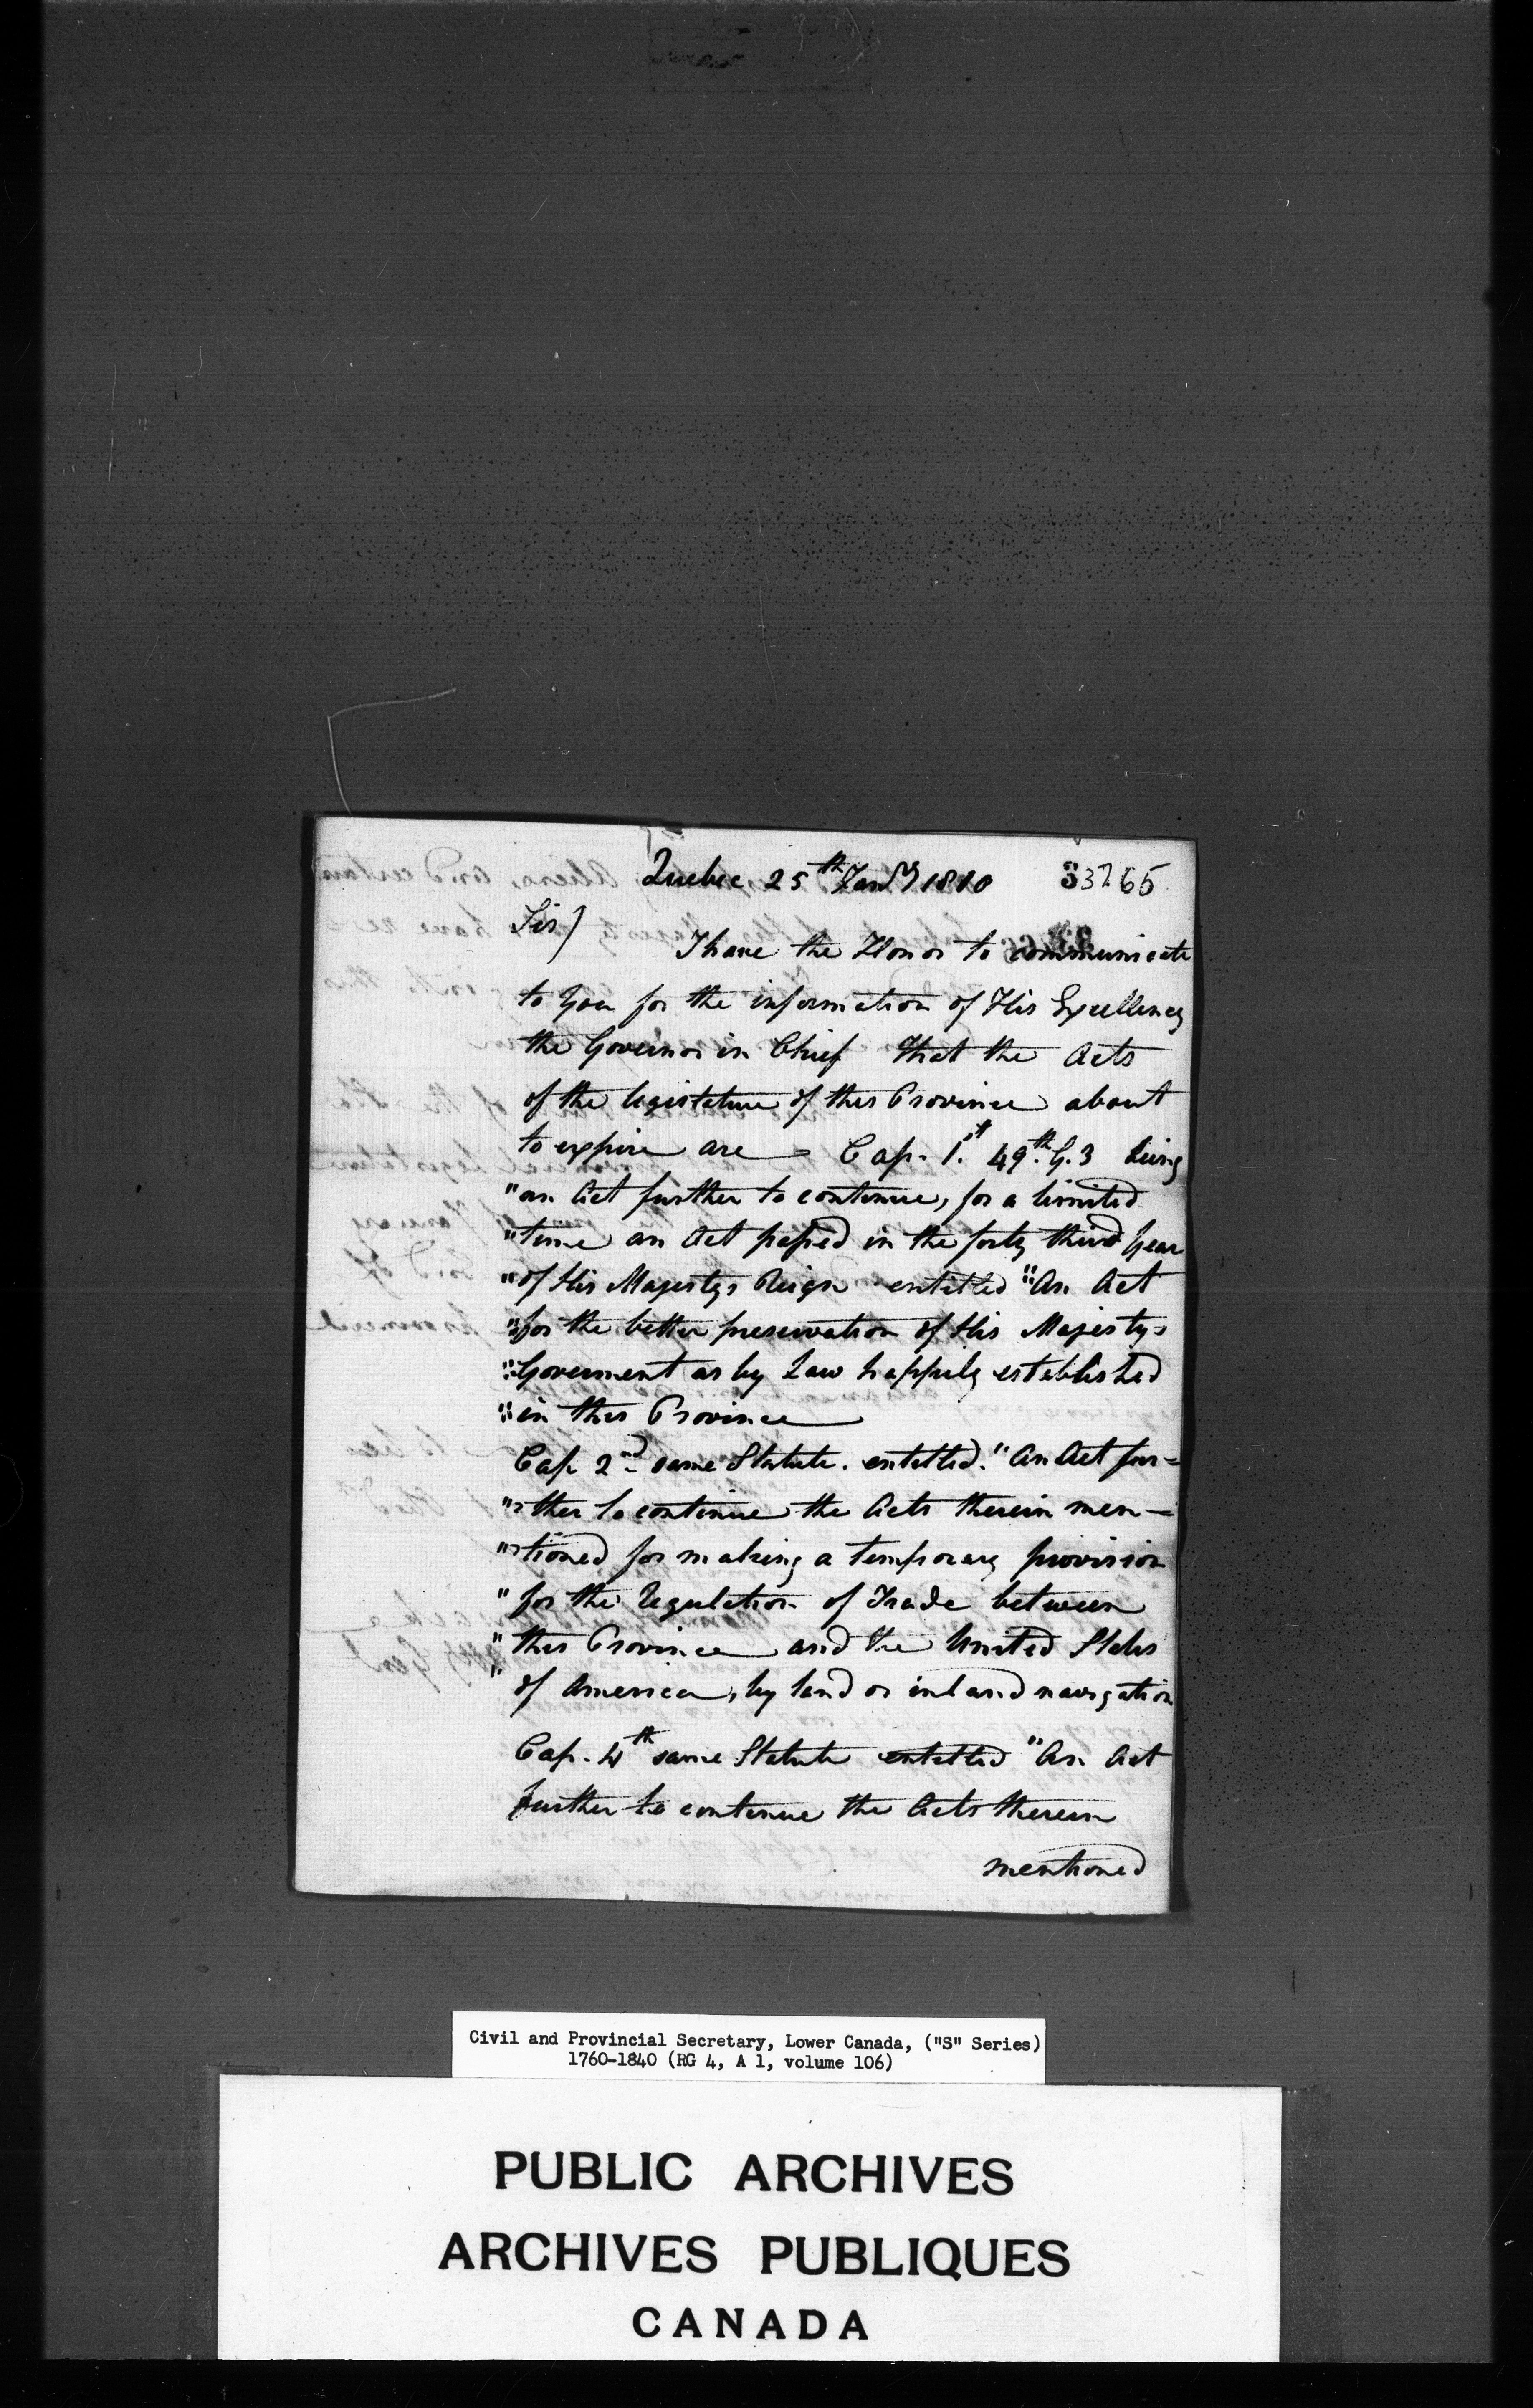 Quebec 25th Jany 1810 33765
Sir)
I have the Honor to communicate
to You for the information of His Excellency
the Governor in Chief That the Acts
of the legislature of this Province about
to expire are – Cap. 1.st 49.th G.3 being
"an Act further to continue, for a limited
"time an Act passed in the forty third Year
"of His Majestys Reign entitled "An Act
"for the better preservation of His Majestys
"Goverment as by Law happily established
"in this Province
Cap 2nd same Statute. entitled. "An Act fur=
"ther to continue the Acts therein men-
"tioned for making a temporary provision
"for the Regulation of Trade between
"this Province and the United States
"of America, by land or inland navigation
Cap. 4th same Statute entitled "An Act
further to continue the Acts therein
mentioned
Civil and Provincial Secretary, Lower Canada, ("S" Series)
1760-1840 (RG 4, A 1, volume 106)
PUBLIC ARCHIVES
ARCHIVES PUBLIQUES
CANADA